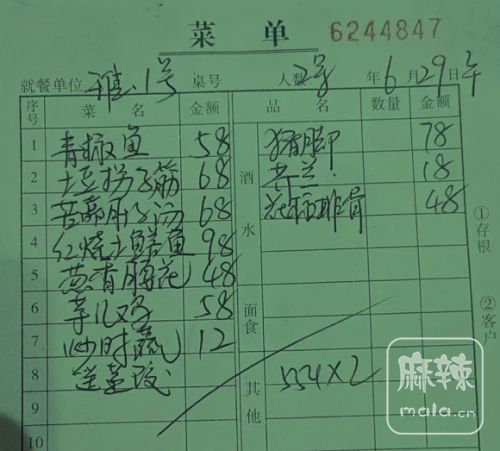 菜 单 6244847
就餐单位 雅1号 桌号 人数 2号 年6月29日午
序号 菜 名 金额 品 名 数量 金额
1 青椒鱼 58 猪脚 78
2 土豆拐子筋 68 酒 芥兰 18
3 68 排骨 48
4 红烧土鳝鱼 98 水
5 葱香腰花 48
6 芋儿鸡 58
7 炒时蔬 12 面食
8 送 其他 554×2
9
10
①存根
②客户
麻辣
mala.cn